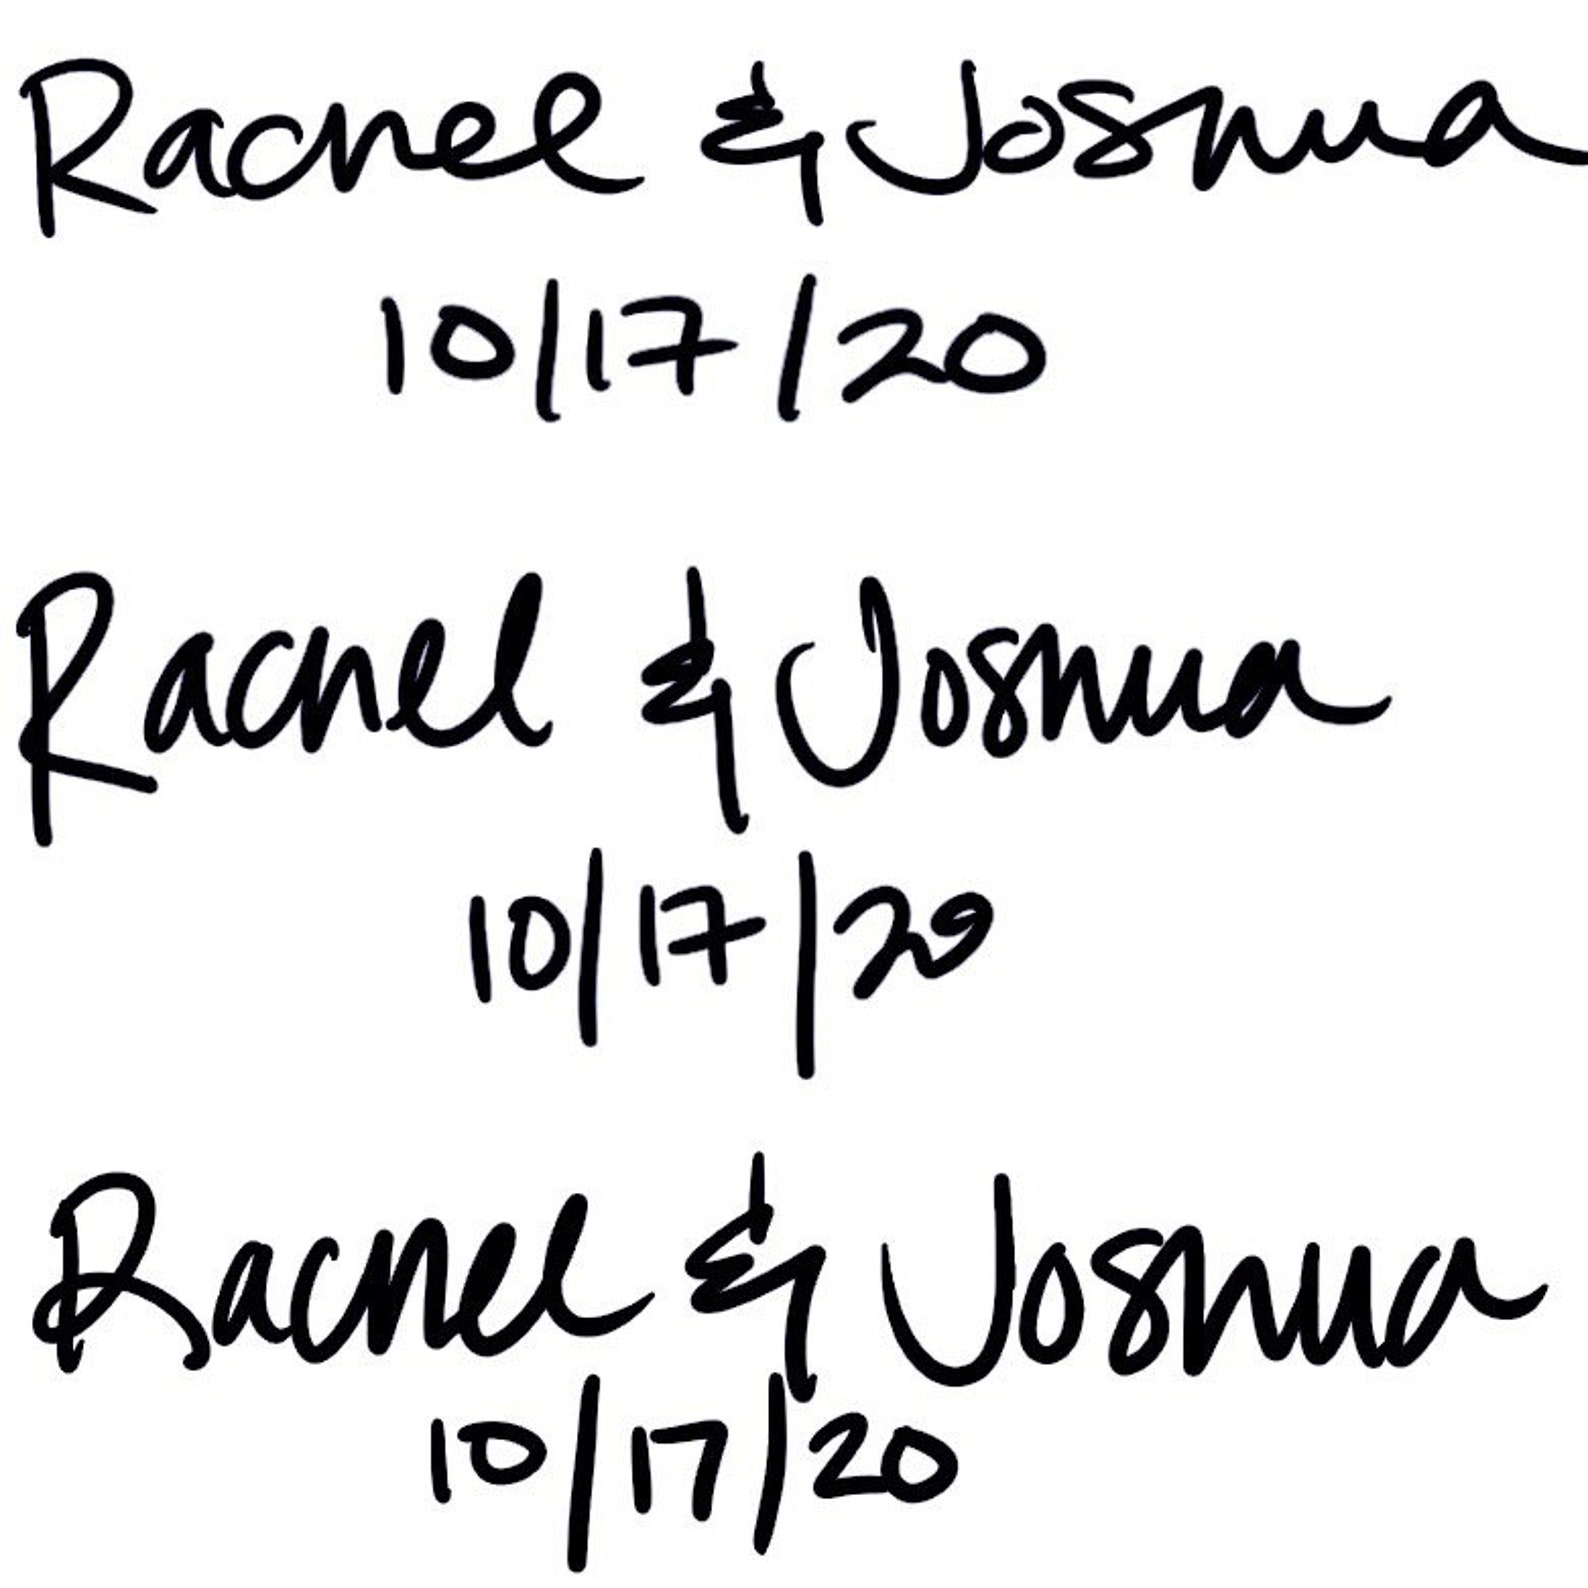 Rachel & Joshua
10/17/20
Rachel & Joshua
10/17/20
Rachel & Joshua
10/17/20